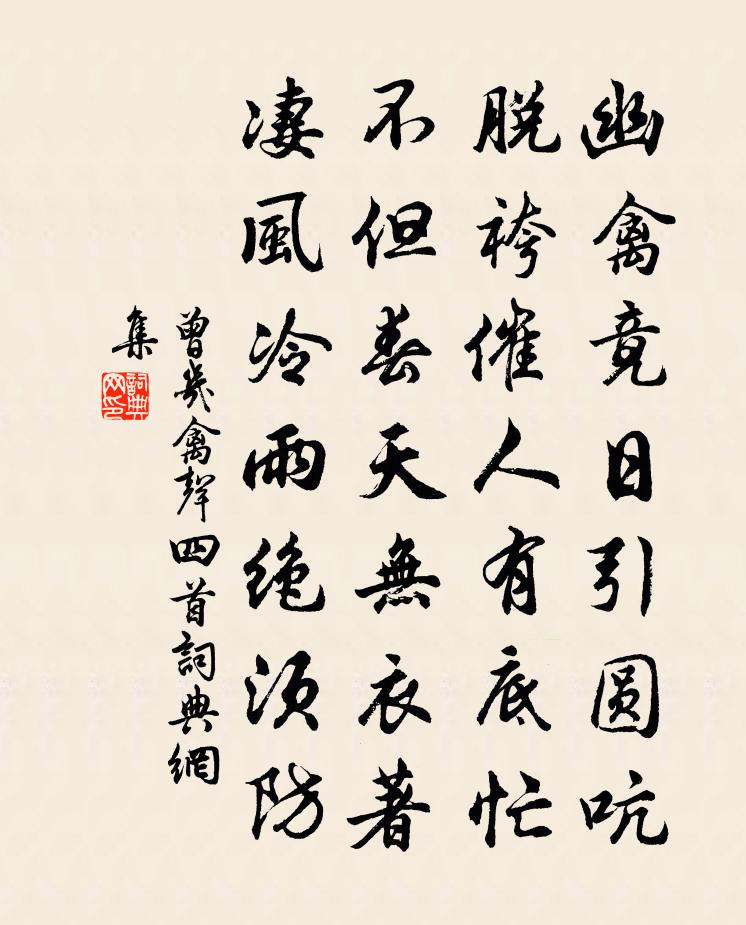 幽禽竟日引圆吭
脱袴催人有底忙
不但春天無衣著
凄風冷雨绝須防
曾幾禽聲四首詞典網
集
詞典
网印